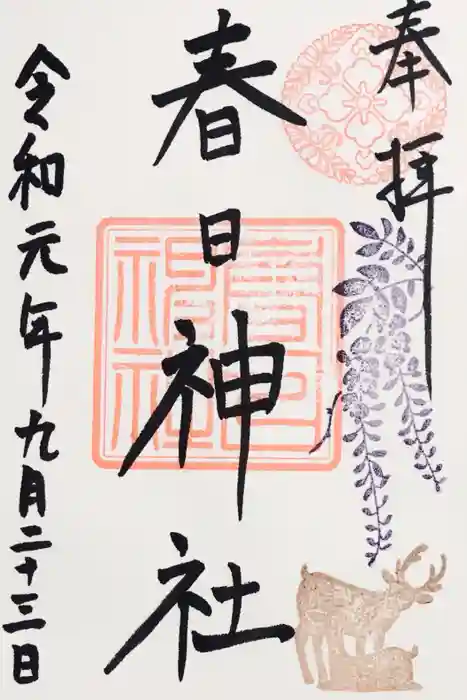 奉拝
春日神社
春日神社
令和元年九月二十三日